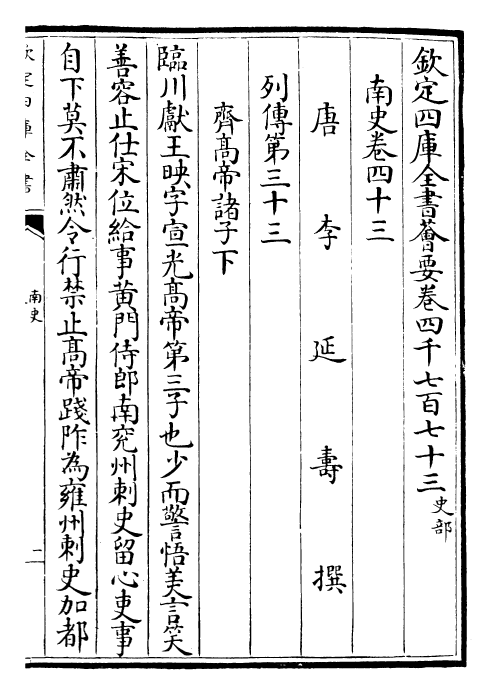 欽定四庫全書薈要卷四千七百七十三史部
南史卷四十三
唐李延壽撰
列傳第三十三
齊髙帝諸子下
臨川獻王映字宣光髙帝第三子也少而警悟美言笑
善容止仕宋位給事黄門侍郎南兖州刺史留心吏事
自下莫不肅然令行禁止髙帝踐阼為雍州刺史加都
欽定四庫全書
南史
二